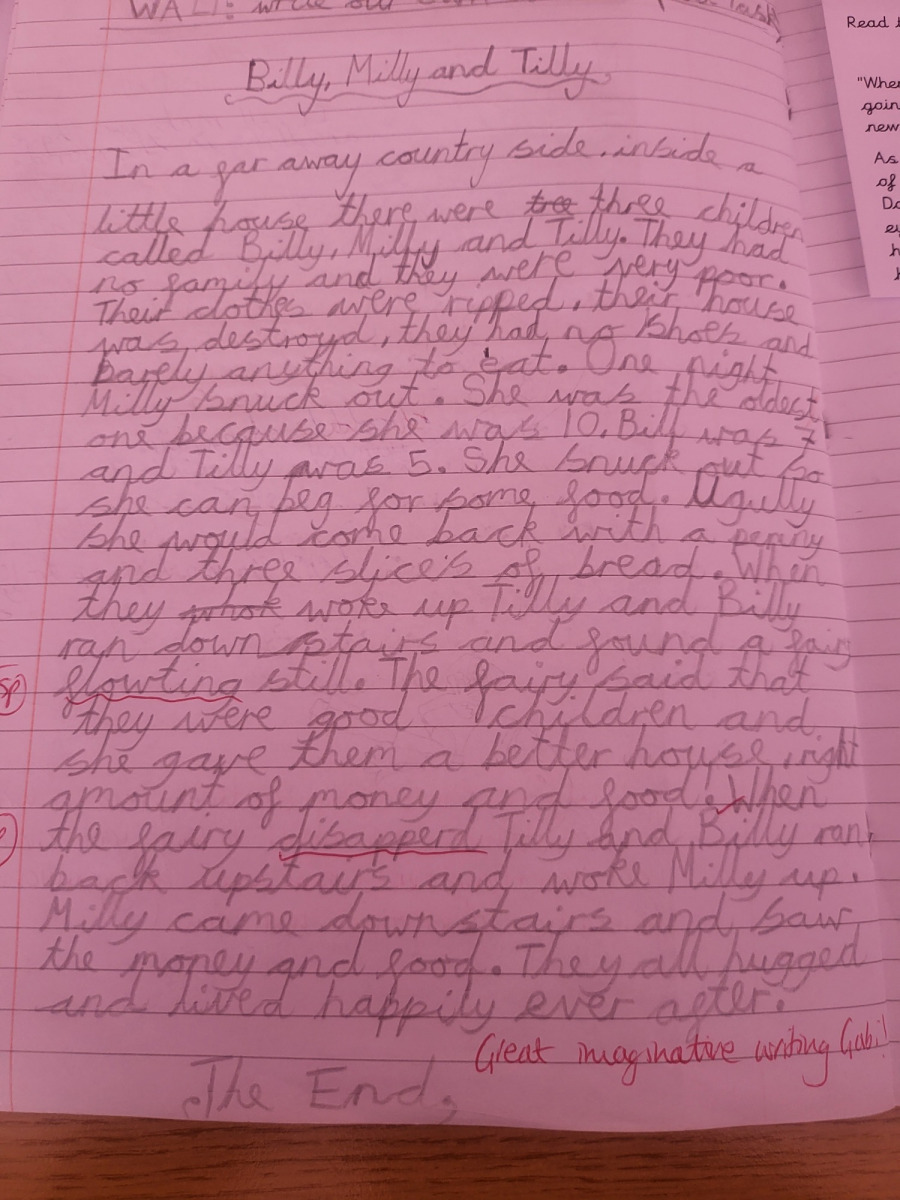 WALT: write our
task
Billy, Milly and Tilly
In a far away country side, inside a
little house there were tree three children
called Billy, Milly and Tilly. They had
no family and they were very poor.
Their clothes were ripped, their house
was destroyd, they had no shoes and
barely anything to eat. One night
Milly snuck out. She was the oldest
one because she was 10, Billy was 7
and Tilly was 5. She snuck out so
she can beg for some food. Usully
she would come back with a penny
and three slice's of bread. When
they whok woke up Tilly and Billy
ran down stairs and found a fairy
flowting still. The fairy said that
sp
they were good children and
she gave them a better house, right
amount of money and food! When
the fairy disapperd Tilly and Billy ran
back upstairs and woke Milly up.
Milly came downstairs and saw
the money and food. They all hugged
and lived happily ever after.
Great imaginative writing Gabi!
The End.
Read
"When
goin
new
As
of